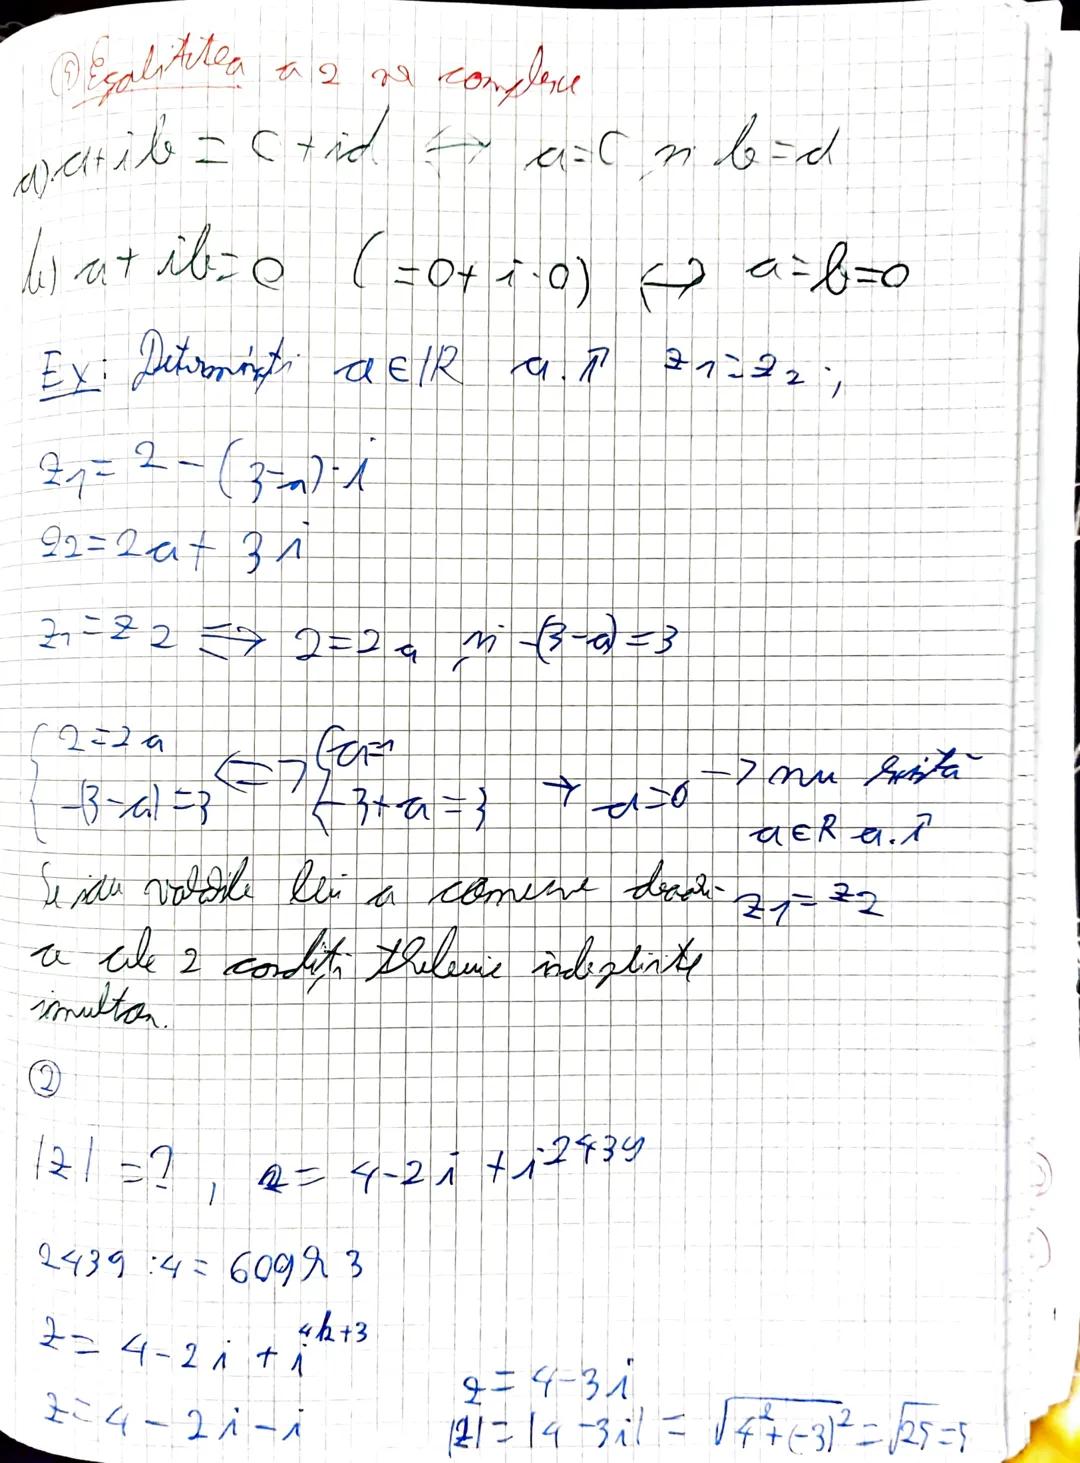 ① Egalitatea a 2 nr complexe
a) a+ib = c+id ⟺ a=c și b=d
b) a+ib=0 (=0+i·0) ⟺ a=b=0
Ex: Determinați a∈ℝ a.î z₁=z₂;
z₁=2-(3-a)·i
z₂=2a+3i
z₁=z₂ ⟺ 2=2a și -(3-a)=3
{2=2a ⟺ {a=1
{-(3-a)=3 {-3+a=3 → a=6 → nu există a∈R a.î z₁=z₂
Se iau valorile lui a comune
a cele 2 condiții îndeplinite
simultan.
②
|z|=?, z=4-2i+i²⁴³⁹
2439:4=609 R 3
z=4-2i+i⁴ᵏ⁺³
z=4-2i-i
z=4-3i
|z|=|4-3i|=√(4²+(-3)²)=√25=5